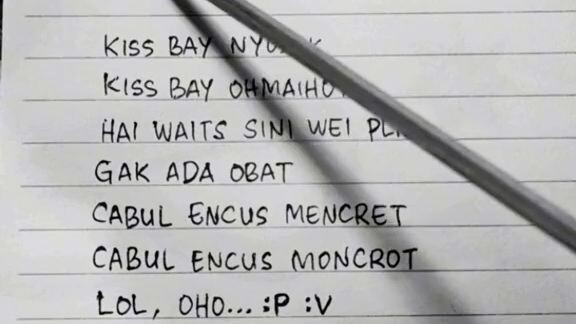 KISS BAY
KISS BAY
HAI WAITS SINI WEI
GAK ADA OBAT
CABUL ENCUS MENCRET
CABUL ENCUS MONCROT
LOL, OHO... :P :V